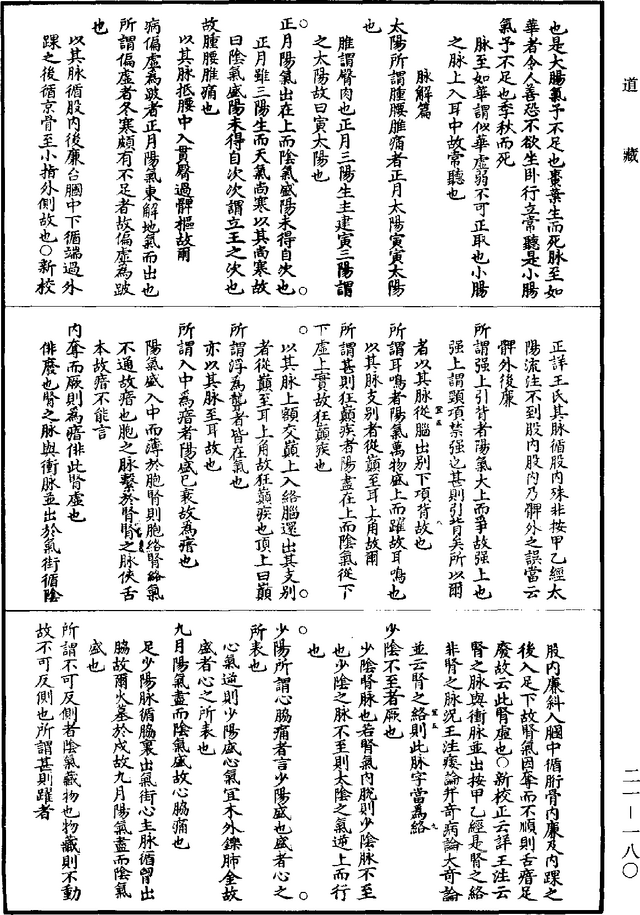 道藏
也是大腸氣予不足也棗葉生而死脉至如
華者令人善恐不欲坐卧行立常聽是小腸
氣予不足也季秋而死
脉至如華謂似華虛弱不可正取也小腸
之脉上入耳中故常聽也
脉解篇
太陽所謂腫腰脽痛者正月太陽寅寅太陽
也
脽謂臀肉也正月三陽生主建寅三陽謂
之太陽故曰寅太陽也
正月陽氣出在上而陰氣盛陽未得自次也
正月雖三陽生而天氣尚寒以其尚寒故
曰陰氣盛陽未得自次次謂立王之次也
故腫腰脽痛也
以其脉抵腰中入貫臀過髀樞故爾
病偏虛為跛者正月陽氣東解地氣而出也
所謂偏虛者冬寒頗有不足者故偏虛為跛
也
以其脉循股內後廉合膕中下循踹過外
踝之後循京骨至小指外側故也○新校
正詳王氏其脉循股內殊非按甲乙經太
陽流注不到股內股內乃髀外之誤當云
髀外後廉
所謂強上引背者陽氣大上而爭故強上也
強上謂頸項禁強也甚則引背矣所以爾
者以其脉從腦出別下項背故也
所謂耳鳴者陽氣萬物盛上而躍故耳鳴也
以其脉支別者從巔至耳上角故爾
所謂甚則狂巔疾者陽盡在上而陰氣從下
下虛上實故狂巔疾也
以其脉上額交巔上入絡腦還出其支別
者從巔至耳上角故狂巔疾也頂上曰巔
所謂浮為聾者皆在氣也
亦以其脉至耳故也
所謂入中為瘖者陽盛已衰故為瘖也
陽氣盛入中而薄於胞腎則胞絡腎絡氣
不通故瘖也胞之脉繫於腎腎之脉俠舌
本故瘖不能言
內奪而厥則為瘖俳此腎虛也
俳廢也腎之脉與衝脉並出於氣街循陰
股內廉斜入膕中循䯒骨內廉及內踝之
後入足下故腎氣因奪而不順則舌瘖足
廢故云此腎虛也○新校正云詳王注云
腎之脉與衝脉並出按甲乙經是腎之絡
非腎之脉況王注痿論并奇病論大奇論
並云腎之絡則此脉字當為絡
少陰不至者厥也
少陰腎脉也若腎氣內脫則少陰脉不至
也少陰之脉不至則太陰之氣逆上而行
也
少陽所謂心脇痛者言少陽盛也盛者心之
所表也
心氣逆則少陽盛心氣宜木外鑠肺金故
盛者心之所表也
九月陽氣盡而陰氣盛故心脇痛也
足少陽脉循脇裏出氣街心主脉循胷出
脇故爾火墓於戌故九月陽氣盡而陰氣
盛也
所謂不可反側者陰氣藏物也物藏則不動
故不可反側也所謂甚則躍者
二一—一八〇